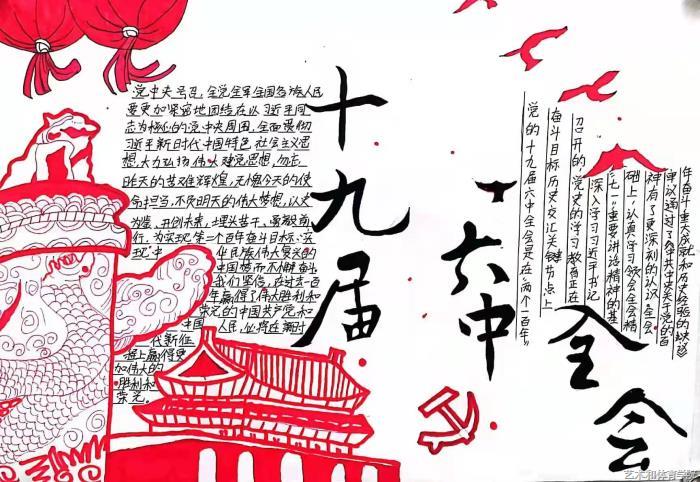 十九届
六中
全会
党中央号召，全党全军全国各族人民
要更加紧密地团结在以习近平同
志为核心的党中央周围，全面贯彻
习近平新时代中国特色社会主义思
想，大力弘扬伟大建党思想，勿忘
昨天的苦难辉煌，无愧今天的使
命担当，不负明天的伟大梦想，以史
为鉴、开创未来，埋头苦干、勇毅前
行，为实现第二个百年奋斗目标、实
现中华民族伟大复兴的
中国梦而不懈奋斗
我们坚信，在过去一百
年赢得了伟大胜利和
荣光的中国共产党和
中国人民，必将在新时
代新征
程上赢得更
加伟大的
胜利和
荣光。
党的十九届六中全会是在“两个一百年”
奋斗目标历史交汇关键节点上
召开的，党史的学习教育正在
深入学习习近平书记
“七一”重要讲话精神的基
础上，认真学习领会全会精
神有了更深刻的认识。全会
审议通过了《中共中央关于党的百
年奋斗重大成就和历史经验的决议》
艺术和体育学院